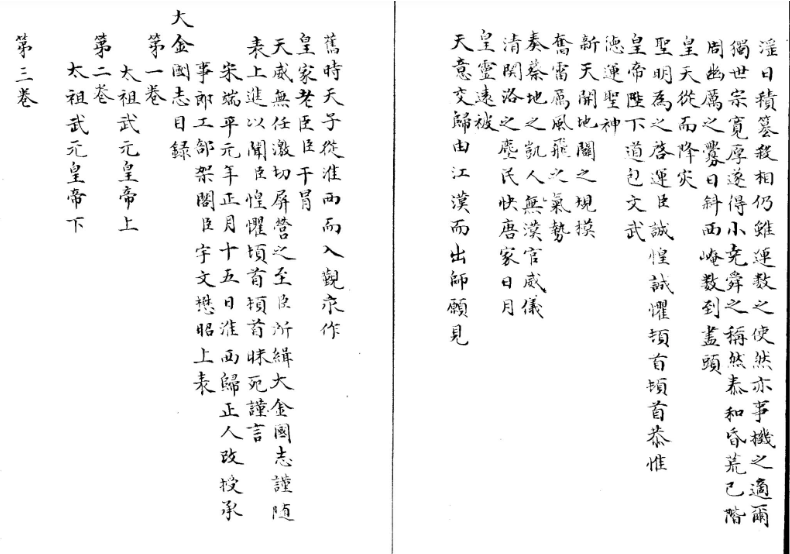 淫日積篡殺相仍雖運數之使然亦事機之適爾
獨世宗寬厚遂得小堯舜之稱然泰和昏荒已階
周幽厲之釁日斜西崦數到盡頭
皇天從而降災
聖明為之啓運臣誠惶誠懼頓首頓首恭惟
皇帝陛下道包文武
德運聖神
新天開地闢之規模
奮雷厲風飛之氣勢
奏蔡地之凱人無漠官威儀
清関洛之塵民快唐家日月
皇靈遠被
天意交歸由江漠而出師願見
舊時天子從淮西而入觀求作
皇家老臣臣干冒
天威無任激切屏營之至臣所緝大金國志謹随
表上進以聞臣惶懼頓首頓首昧死謹言
宋端平元年正月十五日淮西歸正人改授承
事郎工部架閣臣宇文懋昭上表
大金國志目録
第一卷
太祖武元皇帝上
第二卷
太祖武元皇帝下
第三卷